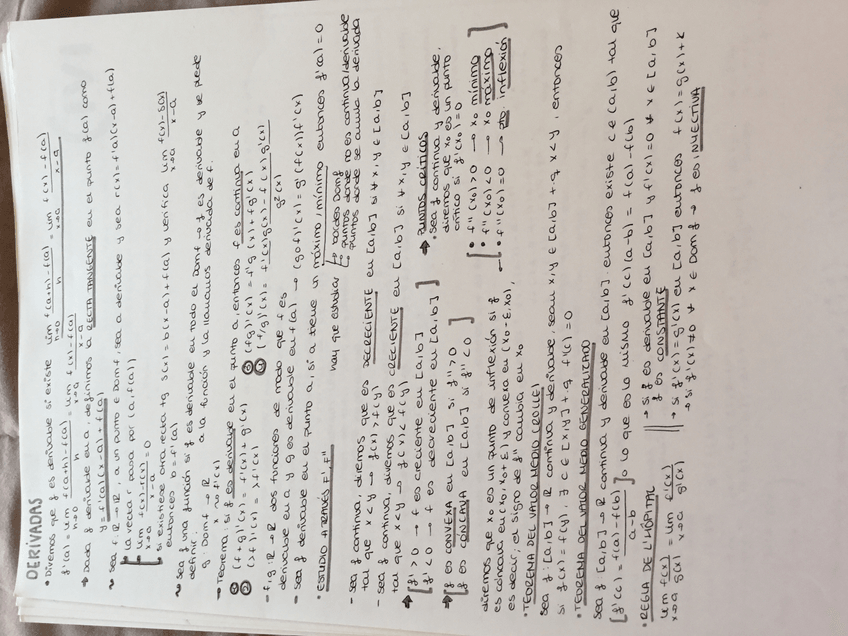 DERIVADAS
• Diremos que f es derivable si existe lim h→0 f(a+h)-f(a) / h = lim x→a f(x)-f(a) / x-a
f'(a) = lim h→0 f(a+h)-f(a) / h = lim x→a f(x)-f(a) / x-a
→ Dada f derivable en a, definimos la RECTA TANGENTE en el punto f(a) como
y = f'(a)(x-a) + f(a)
~ Sea f: R→R, a un punto ∈ Domf, sea a derivable y sea r(x) = f'(a)(x-a)+f(a)
la recta r pasa por (a, f(a))
lim x→a f(x)-r(x) / x-a = 0
si existiese otra recta tq s(x) = b(x-a)+f(a) y verifica lim x→a f(x)-s(x) / x-a
entonces b = f'(a)
~ Sea f una función si f es derivable en todo el Domf → f es derivable y se puede
definir g: Domf → R a la función y la llamamos derivada de f.
x ~ f'(x)
→ Teorema: si f es derivable en el punto a, entonces f es continua en a
(f+g)'(x) = f'(x) + g'(x)
(fg)'(x) = f'g(x) + fg'(x)
(λf)'(x) = λf'(x)
(f/g)'(x) = f'(x)g(x) - f(x)g'(x) / g²(x)
- f, g: R→R dos funciones de modo que f es
derivable en a y g es derivable en f(a) → (g∘f)'(x) = g'(f(x))f'(x)
- Sea f derivable en el punto a, si a tiene un máximo/mínimo entonces f'(a) = 0
• ESTUDIO A TRAVÉS F', F''
hay que estudiar
bordes Domf
puntos donde no es continua/derivable
puntos donde se anula la derivada
- Sea f continua, diremos que es DECRECIENTE en [a,b] si ∀ x,y ∈ [a,b]
tal que x < y → f(x) > f(y)
- Sea f continua, diremos que es CRECIENTE en [a,b] si ∀ x,y ∈ [a,b]
tal que x < y → f(x) < f(y)
→ f' > 0 → f es creciente en [a,b]
f' < 0 → f es decreciente en [a,b]
→ f es CONVEXA en [a,b] si f'' > 0
f es CÓNCAVA en [a,b] si f'' < 0
diremos que x₀ es un punto de inflexión si f
es cóncava en (x₀, x₀+ε) y convexa en (x₀-ε, x₀),
es decir, el signo de f'' cambia en x₀
→ PUNTOS CRÍTICOS
• Sea f continua y derivable,
diremos que x₀ es un punto
crítico si f'(x₀) = 0
• f''(x₀) > 0 → x₀ mínimo
• f''(x₀) < 0 → x₀ máximo
• f''(x₀) = 0 → pto. inflexión
• TEOREMA DEL VALOR MEDIO (ROLLE)
Sea f: [a,b] → R continua y derivable, sean x,y ∈ [a,b] tq x < y, entonces
si f(x) = f(y), ∃ c ∈ [x,y] tq f'(c) = 0
• TEOREMA DEL VALOR MEDIO GENERALIZADO
Sea f: [a,b] → R continua y derivable en [a,b]. entonces existe c ∈ (a,b) tal que
f'(c) = f(a)-f(b) / a-b o lo que es lo mismo f'(c)(a-b) = f(a)-f(b)
• REGLA DE L'HÔPITAL
lim x→a f(x)/g(x) = lim x→a f'(x)/g'(x)
→ si f es derivable en [a,b] y f'(x) = 0 ∀ x ∈ [a,b]
f es CONSTANTE
→ si f'(x) = g'(x) en [a,b] entonces f(x) = g(x) + k
→ si f'(x) ≠ 0 ∀ x ∈ Domf → f es INYECTIVA